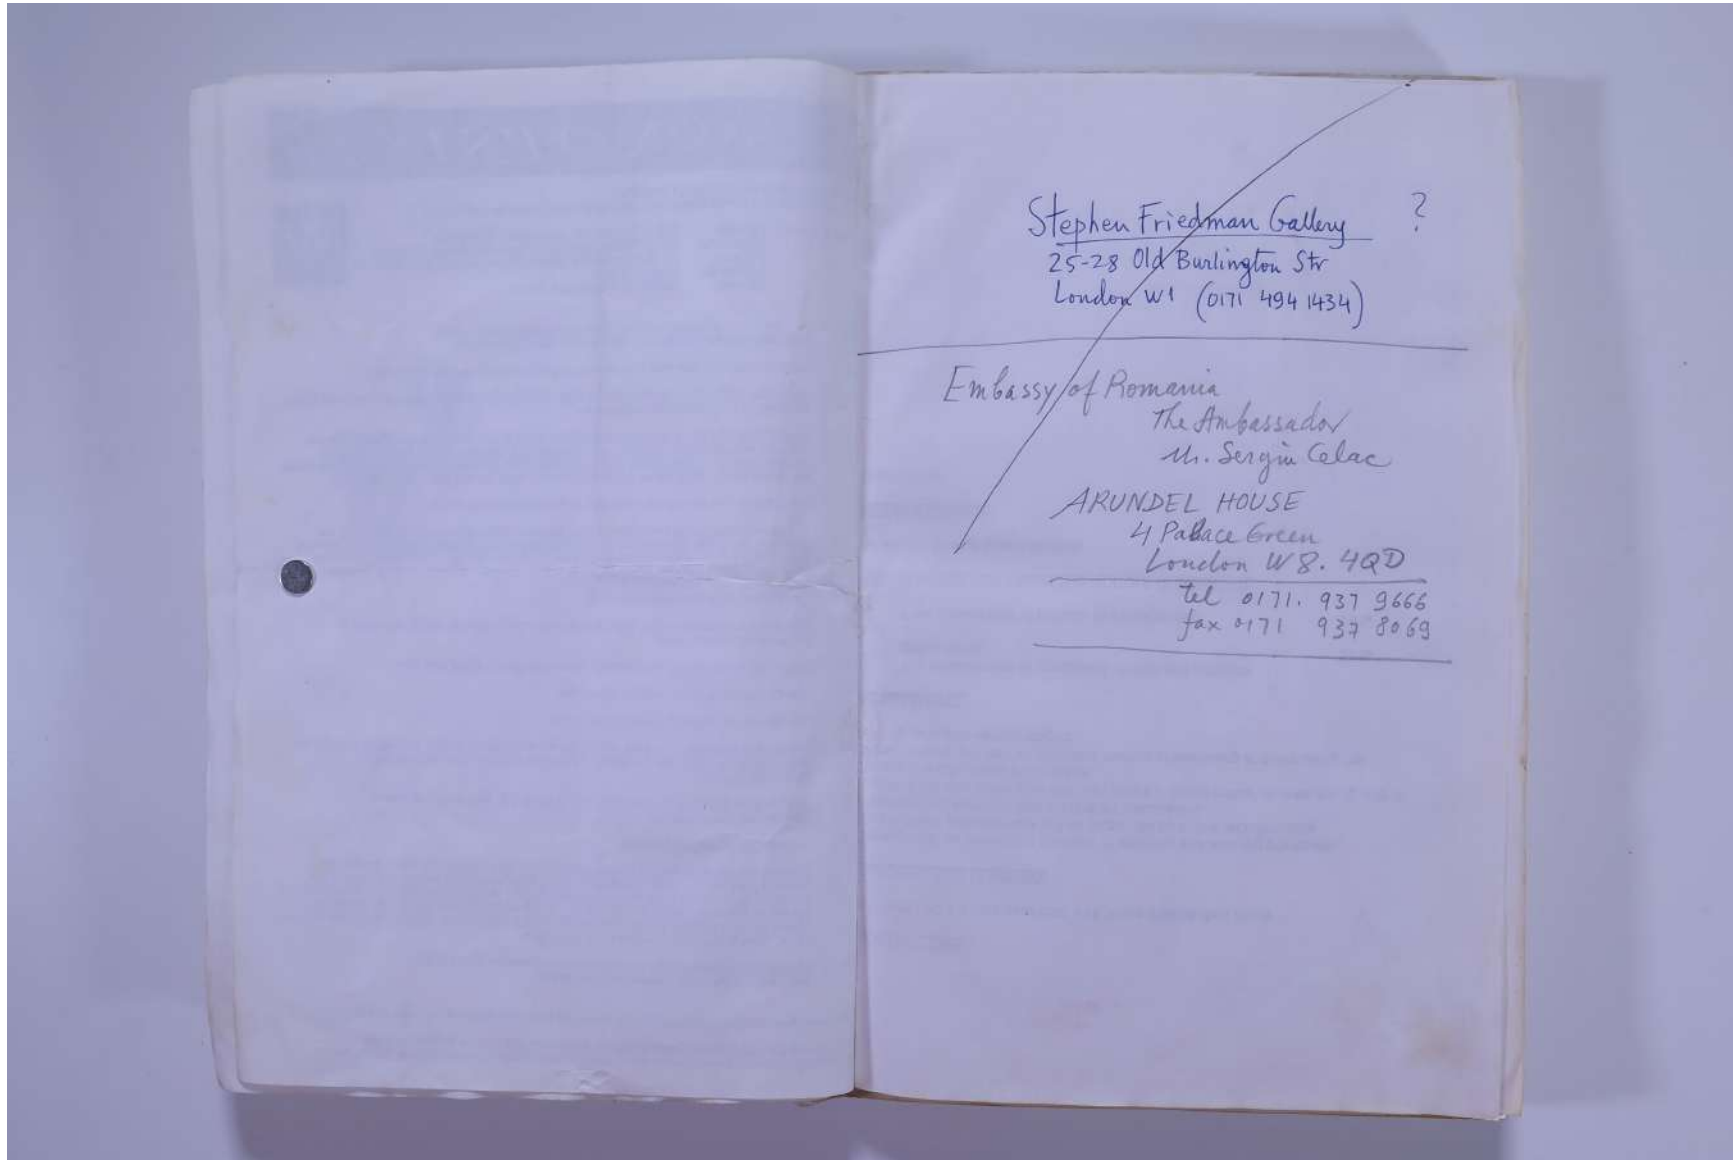 Stephen Friedman Gallery ?
25-28 Old Burlington Str
London W1 (0171 494 1434)
Embassy of Romania
The Ambassador
M. Sergiu Celac
ARUNDEL HOUSE
4 Palace Green
London W8. 4QD
tel 0171. 937 9666
fax 0171 937 8069